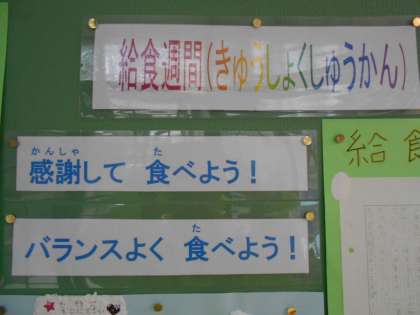 給食週間(きゅうしょくしゅうかん)
かんしゃ た
感謝して 食べよう!
た
バランスよく 食べよう!
給食